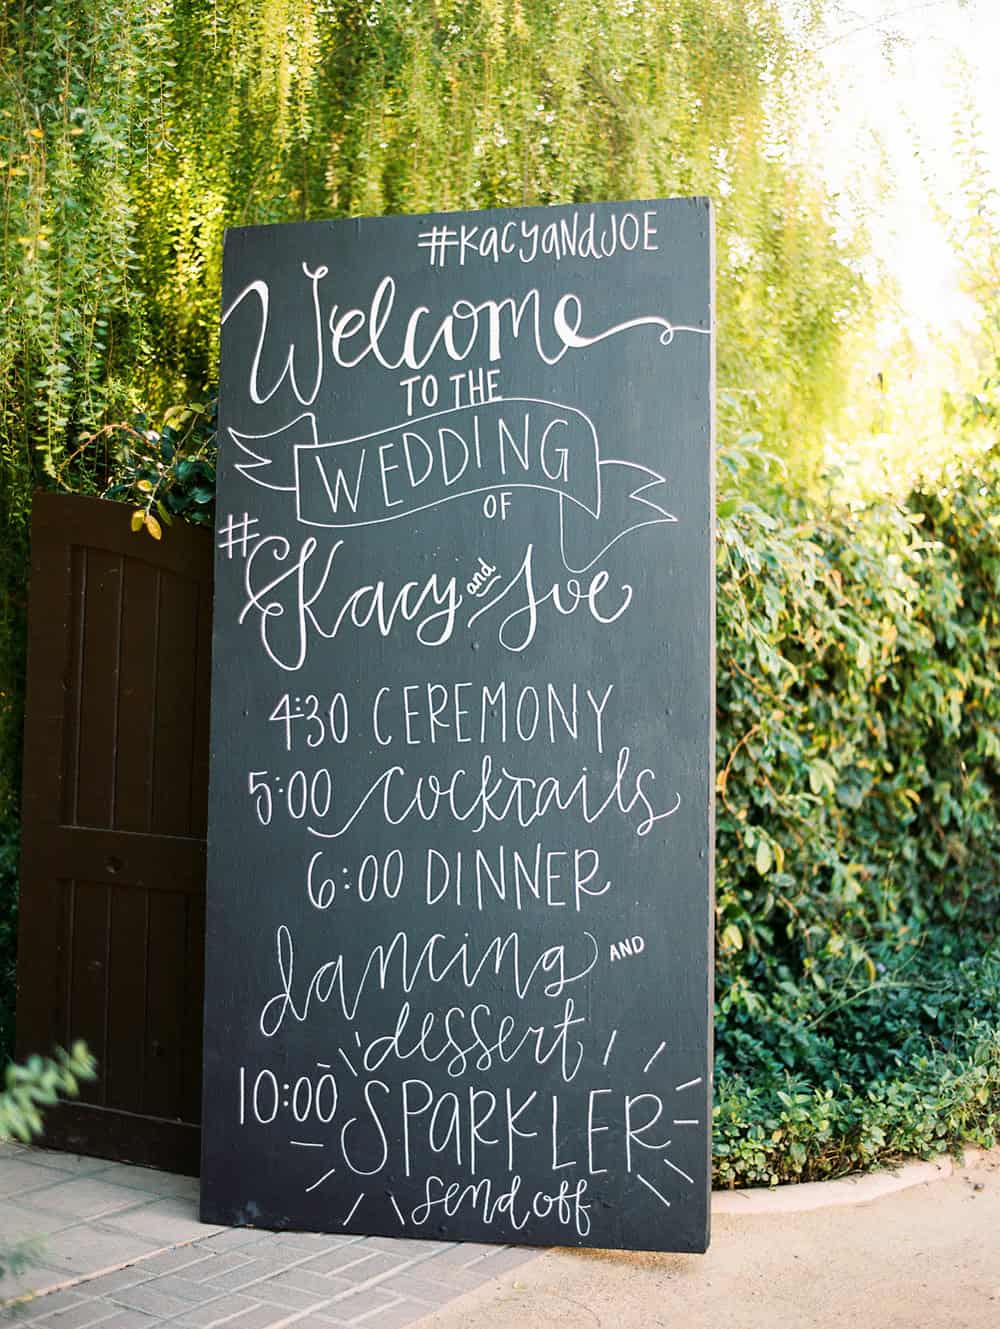 #KACYANDJOE
Welcome
TO THE
WEDDING
OF
#Kacy and Joe
4:30 CEREMONY
5:00 cocktails
6:00 DINNER
dancing AND
dessert
10:00 SPARKLER
send off